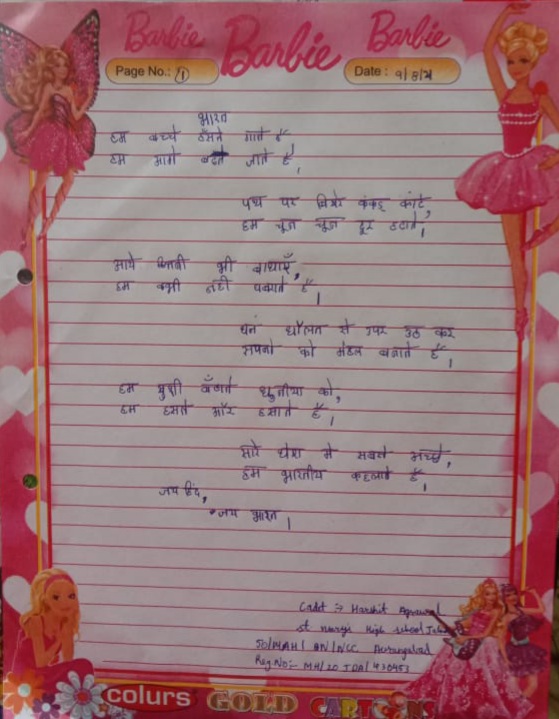 Barbie Barbie Barbie
Page No.: 11
Date: 9/8/21
भारत
हम बच्चे हँसते गाते हैं
हम आगे बढते जाते हैं,
पथ पर बिखरे कंकड़ कांटे,
हम चून चून दूर हटाते।
आये कितनी भी बाधाएँ,
हम कभी नही घबराते हैं।
धन दौलत से उपर उठ कर
सपनो को महल बनाते हैं।
हम खुशी बाँटते दुनीया को,
हम हसते और हसाते हैं।
सारे देश मे सबसे अच्छे,
हम भारतीय कहलाते हैं।
जय हिंद,
जय भारत।
Cadet :- Harshit Agrawal
st. mary's High school
BN/NCC Aurangabad
Reg No:- MH/20 JDA/430453
colurs GOLD CARTOONS